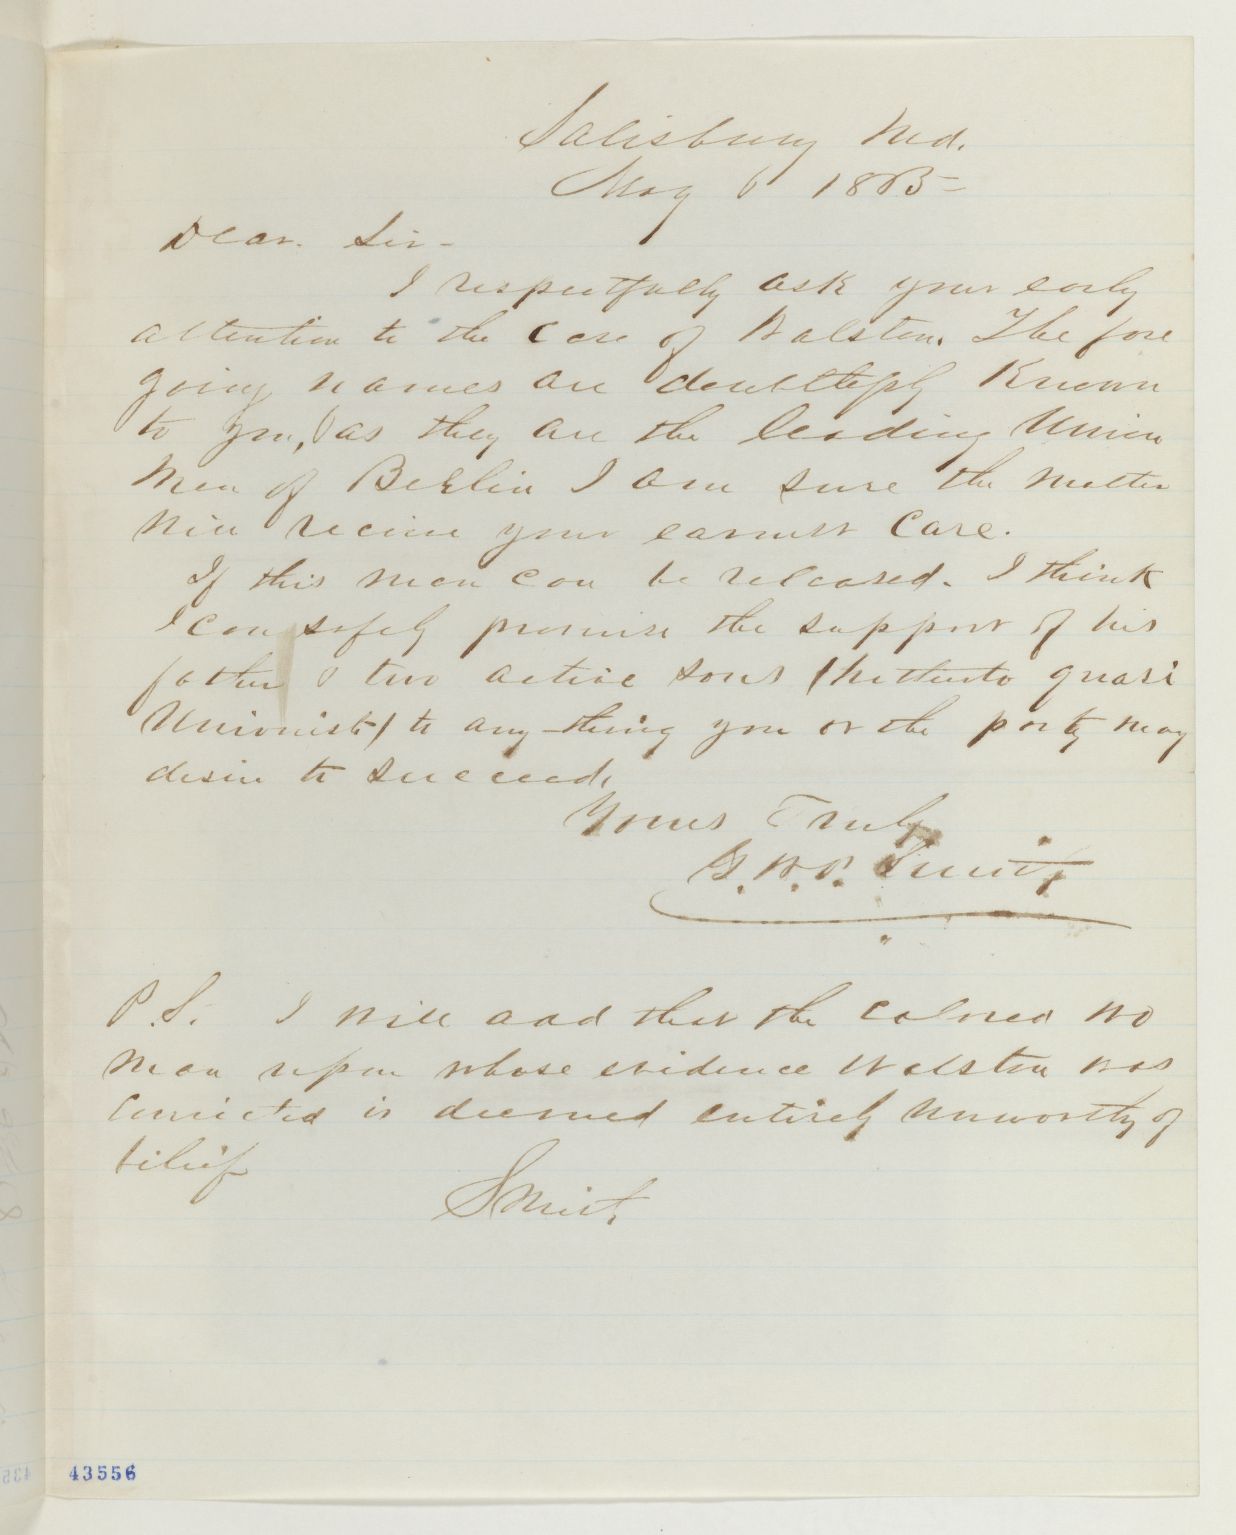 Salisbury Md.
May 6 1865
Dear Sir-
I respectfully ask your early
attention to the Case of Walston. The fore
going names are doubtlessly Known
to you, as they are the leading Union
Men of Berlin I am sure the matter
will receive your earnest Care.
If this man can be released. I think
I can safely promise the support of his
father & two active sons (hitherto quasi
Unionists) to any-thing you or the party may
desire to succeed.
Yours Truly
G. W. P. Smith
P.S. I will add that the colored wo
man upon whose evidence Walston was
convicted is deemed entirely unworthy of
belief
Smith
43556